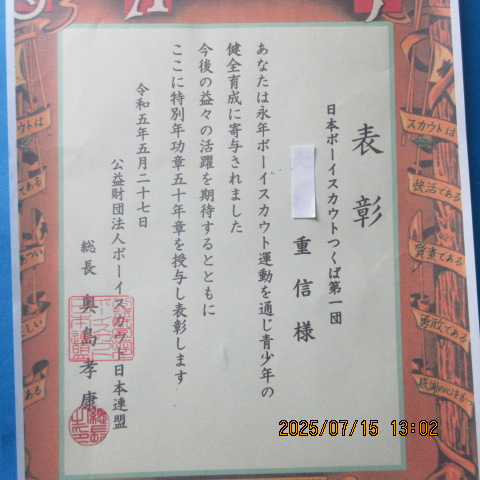 表彰
日本ボーイスカウトつくば第一団
重信様
あなたは永年ボーイスカウト運動を通じ青少年の
健全育成に寄与されました
今後の益々の活躍を期待するとともに
ここに特別年功章五十年章を授与し表彰します
令和五年五月二十七日
公益財団法人ボーイスカウト日本連盟
総長 奥島孝康
スカウトは
快活である
質素である
勇敢である
感謝の心を
ウトは
ある
あつい
正しい
ある
2025/07/15 13:02